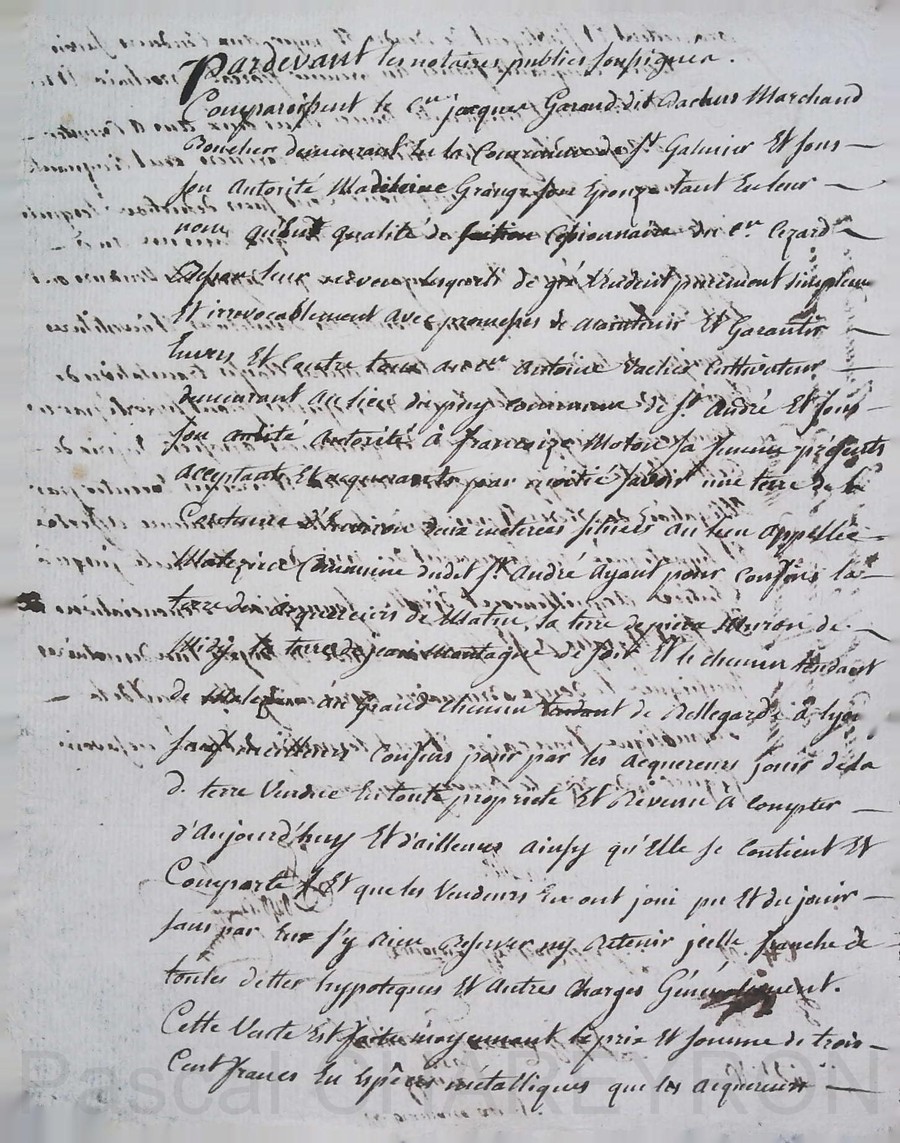 Pardevant les notaires publics soussignés.
Comparoissent le Cen jacques Garand dit Marchand
Boucher demeurant En la Commune de St Galmier Et sous
son Autorité Madeleine Grange son Epouse tant En leur
nom qu'en qualité de Cessionnaire du Cen Cezard
Lesquels de gré Vendent purement simplem
Et irrevocablement avec promesses de maintenir Et Garantir
Envers Et Contre tous au Cen Antoine Vachier Cultivateur
demeurant au lieu du puy commune de St André Et sous
son autorité à francoize sa femme présents
acceptants Et acquerants par moitié savoir une terre de la
Contenue d'Environ deux meterées située au lieu appellée
Commune dudit St André Ayant pour Confins la
terre des acquereurs de Matin, la terre de pierre de
Midy la terre de jean Montagne de soir Et le chemin tendant
de au grand chemin tendant de Bellegarde à Lyon
sauf meilleurs Confins pour par les acquereurs jouir de la
d. terre Vendue En toute propriété Et Revenu à Compter
d'Aujourd'huy Et d'ailleurs ainsy qu'Elle se Contient Et
Comporte Et que les Vendeurs En ont joui pu Et du jouir
sans par Eux s'y Rien Reserver ny Retenir jcelle franche de
toutes dettes hypoteques Et Autres Charges Généralement.
Cette Vente Est faite moyennant le prix Et somme de trois
Cent francs En Espèces métalliques que les acquereurs
Pascal CHAREYRON